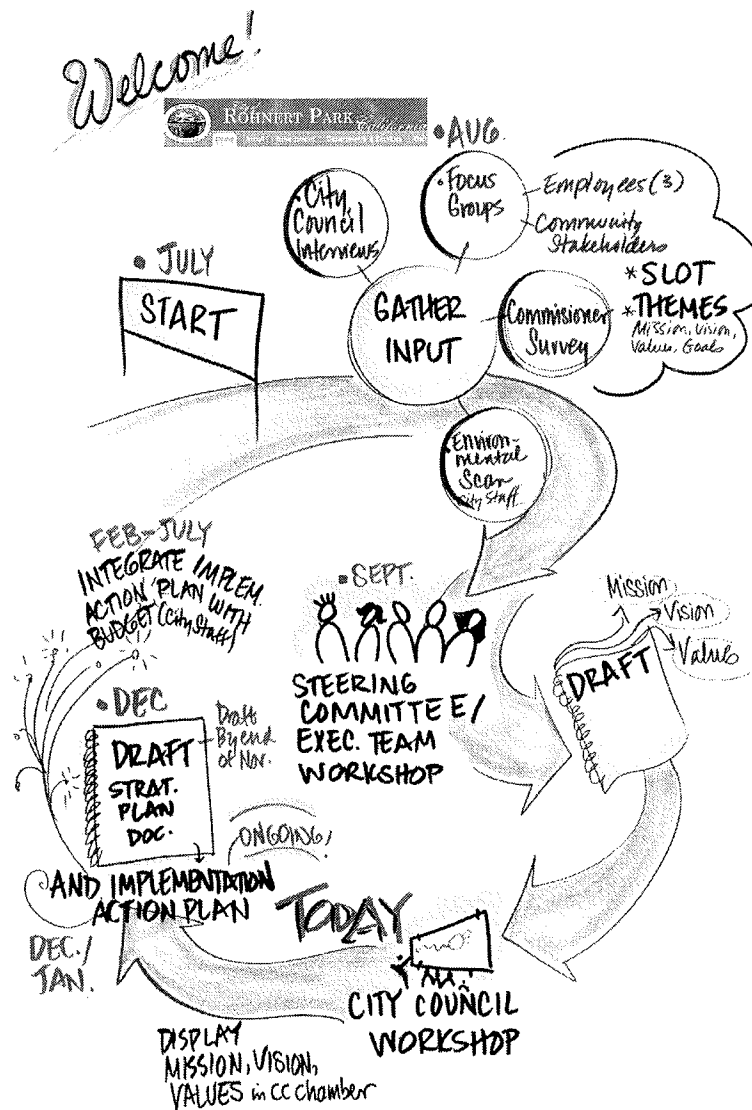 Welcome!
ROHNERT PARK
California
• JULY
START
• AUG.
• City
Council
Interviews
• Focus
Groups
Employees (3)
Community
Stakeholders
GATHER
INPUT
Commisioner
Survey
* SLOT
* THEMES
Mission, Vision,
Values, Goals
Environ-
mental
Scan
City Staff
• SEPT.
STEERING
COMMITTEE/
EXEC. TEAM
WORKSHOP
DRAFT
Mission
Vision
Values
TODAY
CITY COUNCIL
WORKSHOP
DISPLAY
MISSION, VISION,
VALUES in CC chamber
ONGOING
• DEC
DRAFT
STRAT.
PLAN
DOC.
Draft
By end
of Nov.
AND IMPLEMENTATION
ACTION PLAN
DEC./
JAN.
FEB-JULY
INTEGRATE IMPLEM.
ACTION PLAN WITH
BUDGET (City Staff)